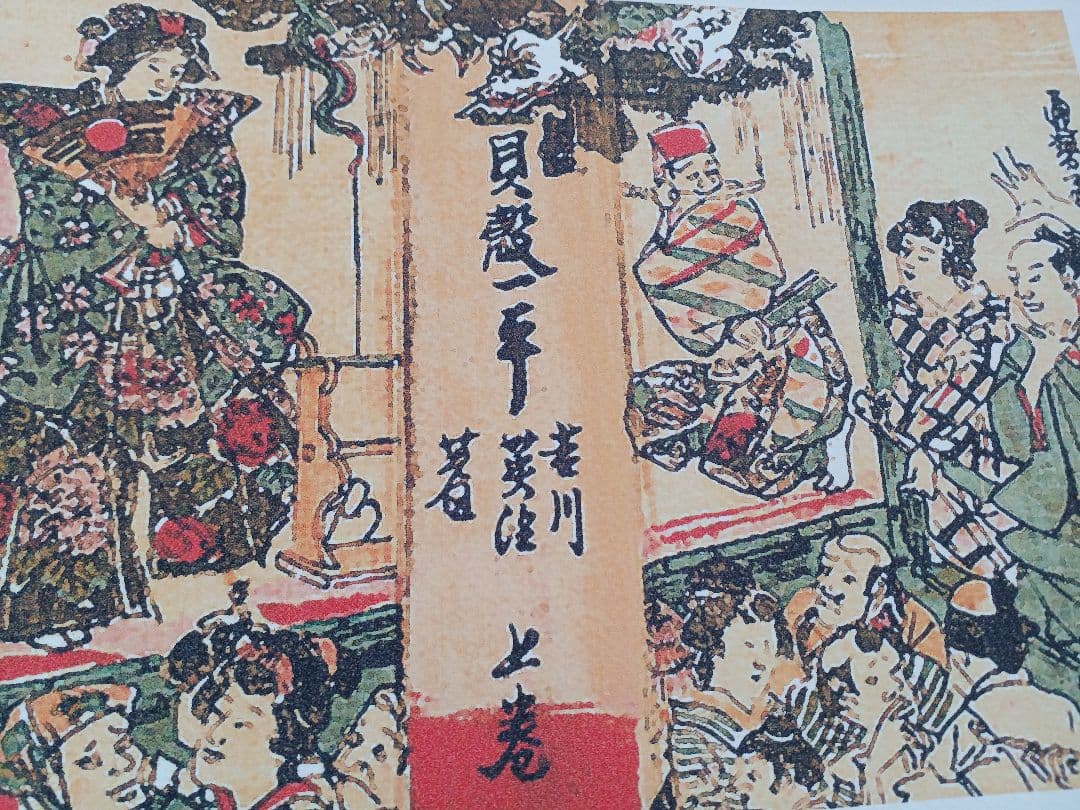 貝殻一平
吉川
英治
著
上巻